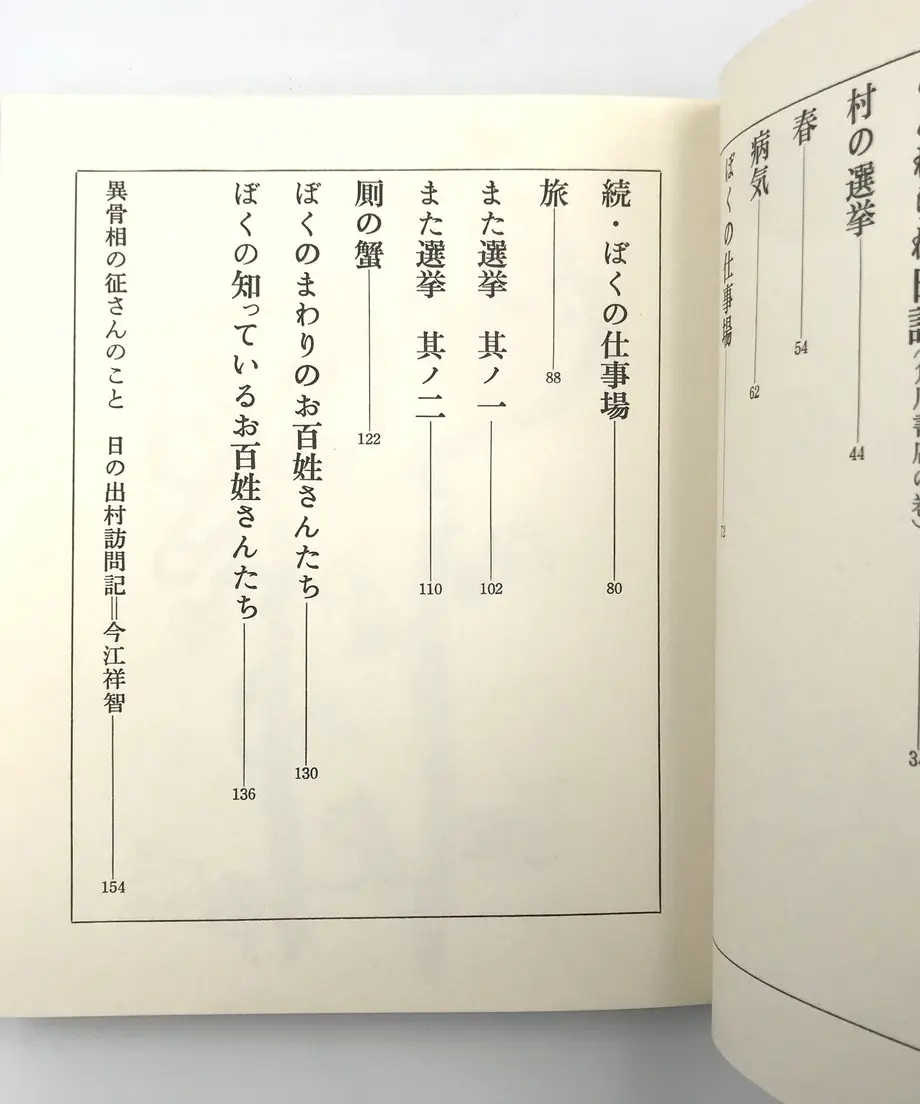 村の選挙 44
春 54
病気 62
ぼくの仕事場 72
続・ぼくの仕事場 80
旅 88
また選挙 其ノ一 102
また選挙 其ノ二 110
厠の蟹 122
ぼくのまわりのお百姓さんたち 130
ぼくの知っているお百姓さんたち 136
異骨相の征さんのこと 日の出村訪問記=今江祥智 154